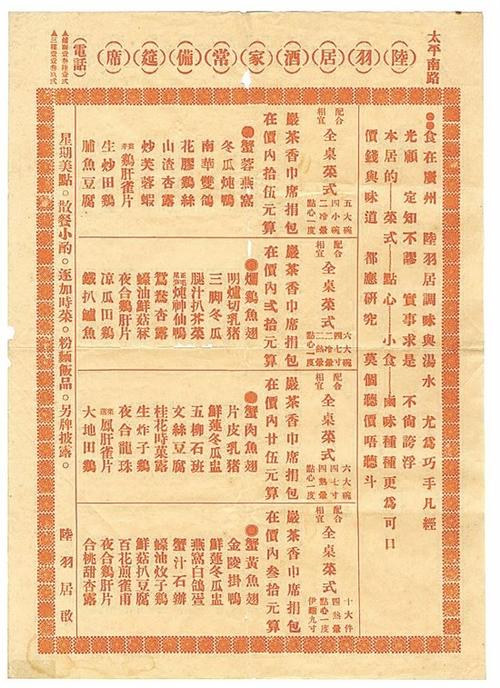 太平南路
陸羽居酒家常備筵席
(電話)
●●食在廣州 陸羽居調味與湯水 尤爲巧手凡經
光顧 定知不謬 實事求是 不尚誇浮
本居的—菜式—點心—小食—鹵味種種更爲可口
價錢與味道 都應研究 莫個聽價唔聽斗
配合
相宜
全桌菜式
五大碗
四小碗
二冷葷
點心一度
嚴茶香巾席捐包
在價內十伍元算
●蟹蓉燕窩
冬瓜炖鴨
南華雙鴿
花膠鷄絲
山渣杏露
炒芙蓉蝦
鷄肝雀片
生炒田鷄
腩魚豆腐
配合
相宜
全桌菜式
六大碗
四七寸
二冷葷
二熱葷
點心一度
嚴茶香巾席捐包
在價內弍拾元算
●燴鷄魚翅
明爐切乳猪
三脚冬瓜
腿汁扒芥菜
炖神仙鴨
鴛鴦杏露
蠔油鮮菇冧
夜合鷄肝片
凉瓜田鷄
鐵扒鱸魚
配合
相宜
全桌菜式
六大碗
四七寸
四熱葷
點心一度
嚴茶香巾席捐包
在價內廿伍元算
●蟹肉魚翅
片皮乳猪
鮮蓮冬瓜盅
五柳石班
文絲豆腐
桂花時菓露
生炸子鷄
夜合龍珠
鳳肝雀片
大地田鷄
配合
相宜
全桌菜式
十大件
四熱葷
點心一度
伊麵九寸
嚴茶香巾席捐包
在價內叁拾元算
●蟹黃魚翅
金陵掛鴨
鮮蓮冬瓜盅
燕窩白鴿蛋
蟹汁石班
蠔油炆子鷄
鮮菇扒豆腐
百花煎雀甫
夜合鷄肝片
合桃甜杏露
星期美點。散餐小酌。逐加時菜。粉麵飯品。另牌披露。
陸羽居啟